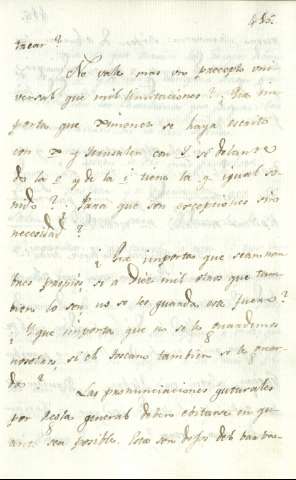 tacar?
No vale mas un precepto uni
versal que mil limitaciones? Que im
porta que Ximenes se haya escrito
con x y Jerusalen con J si delante
de la e y de la i tiene la g igual so
nido? Para que son excepciones sin
necesidad?
? Que importa que sean nom
bres propios, si a diez mil otros que tam
bien lo son no se les guarda ese fuero?
? Y que importa que no se lo guardemos
nosotros, si el toscano tambien se le guar
da?
Las pronunciaciones guturales
por regla general deben evitarse en quan
to sea posible. Estas son del